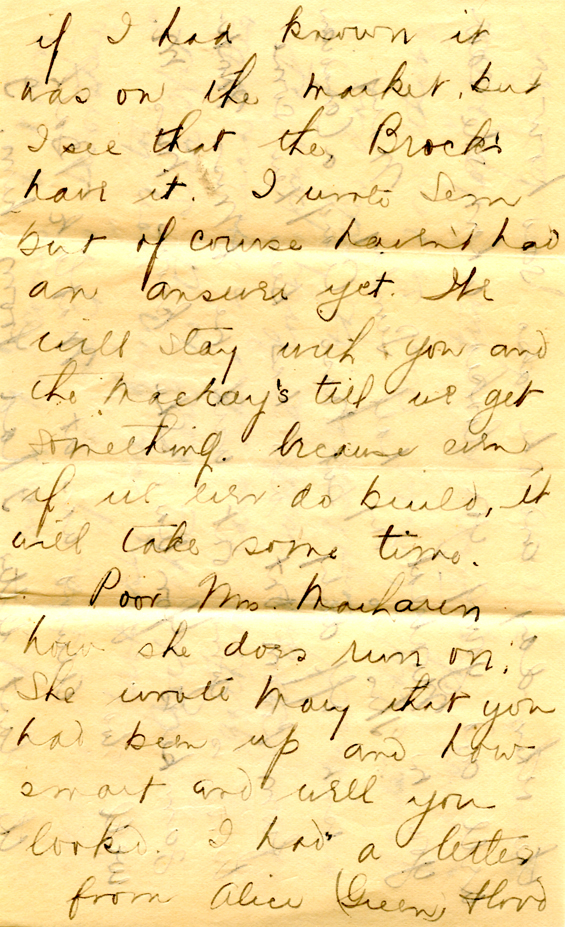 if I had known it
was on the market, but
I see that the Brocks
have it. I wrote Sem
but of course haven't had
an answer yet. We
will stay with you and
the Mackay's till we get
something. because even
if we ever do build, it
will take some time.
Poor Mrs.
how she does run on.
She wrote Mary that you
had been up and how
smart and well you
look'd. I had a letter
from Alice (Green) Hord